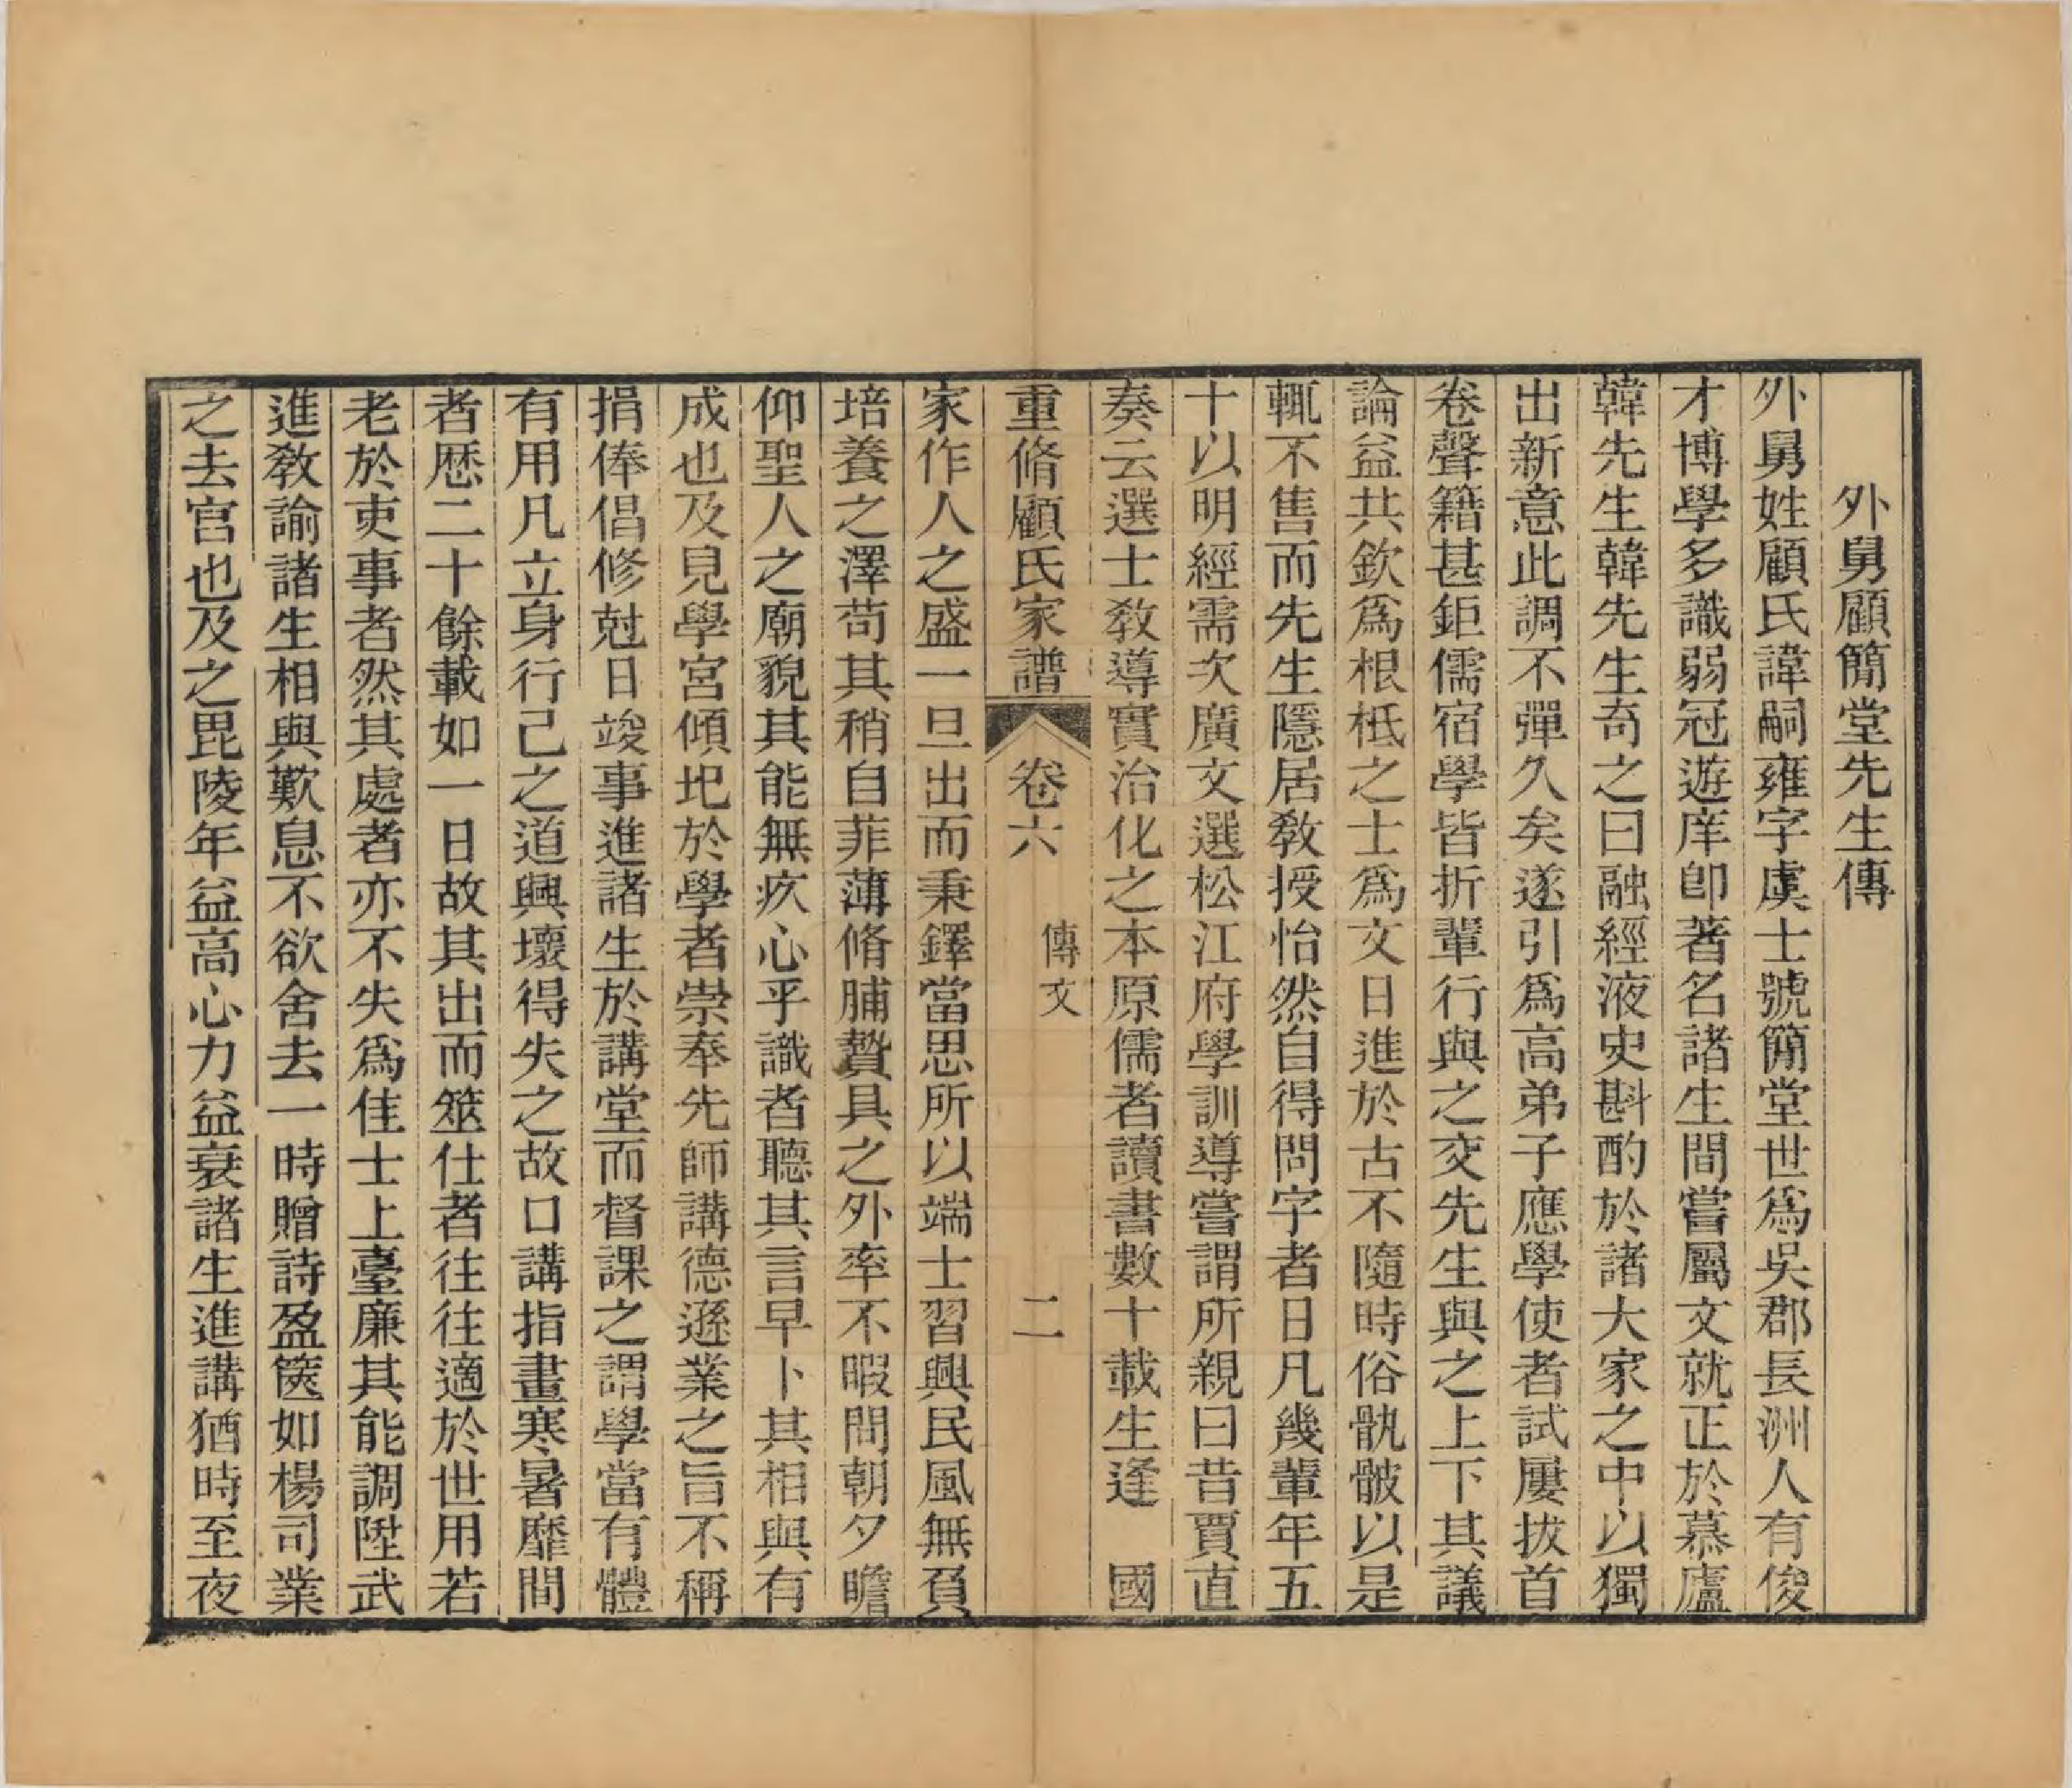 外舅顧簡堂先生傳
外舅姓顧氏諱嗣雍字虞士號簡堂世爲吳郡長洲人有俊
才博學多識弱冠遊庠卽著名諸生間嘗屬文就正於慕廬
韓先生韓先生奇之曰融經液史斟酌於諸大家之中以獨
出新意此調不彈久矣遂引爲高弟子應學使者試屢拔首
卷聲籍甚鉅儒宿學皆折輩行與之交先生與之上下其議
論益共欽爲根柢之士爲文日進於古不隨時俗骩骳以是
輒不售而先生隱居敎授怡然自得問字者日凡幾輩年五
十以明經需次廣文選松江府學訓導嘗謂所親曰昔賈直
奏云選士敎導實治化之本原儒者讀書數十載生逢　國
重脩顧氏家譜　卷六　傳文　二
家作人之盛一旦出而秉鐸當思所以端士習興民風無負
培養之澤苟其稍自菲薄脩脯贄具之外率不暇問朝夕瞻
仰聖人之廟貌其能無疚心乎識者聽其言早卜其相與有
成也及見學宮傾圯於學者崇奉先師講德遜業之旨不稱
捐俸倡修尅日竣事進諸生於講堂而督課之謂學當有體
有用凡立身行己之道興壞得失之故口講指畫寒暑靡間
者歷二十餘載如一日故其出而筮仕者往往適於世用若
老於吏事者然其處者亦不失爲佳士上臺廉其能調陞武
進敎諭諸生相與歎息不欲舍去一時贈詩盈篋如楊司業
之去官也及之毘陵年益高心力益衰諸生進講猶時至夜